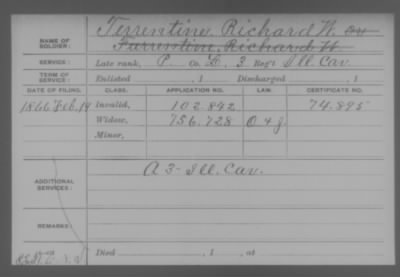 Terrentine, Richard W. or
NAME OF SOLDIER: Turrentine, Richard W.
SERVICE: Late rank, P. Co. L, 3 Reg't Ill. Cav.
TERM OF SERVICE: Enlisted , 1 Discharged , 1
DATE OF FILING. CLASS. APPLICATION NO. LAW. CERTIFICATE NO.
1866 Feb. 19 Invalid, 102.892 74.895
Widow, 756.728 O + J
Minor,
ADDITIONAL SERVICES: A 3- Ill. Cav.
REMARKS:
Died , 1 , at